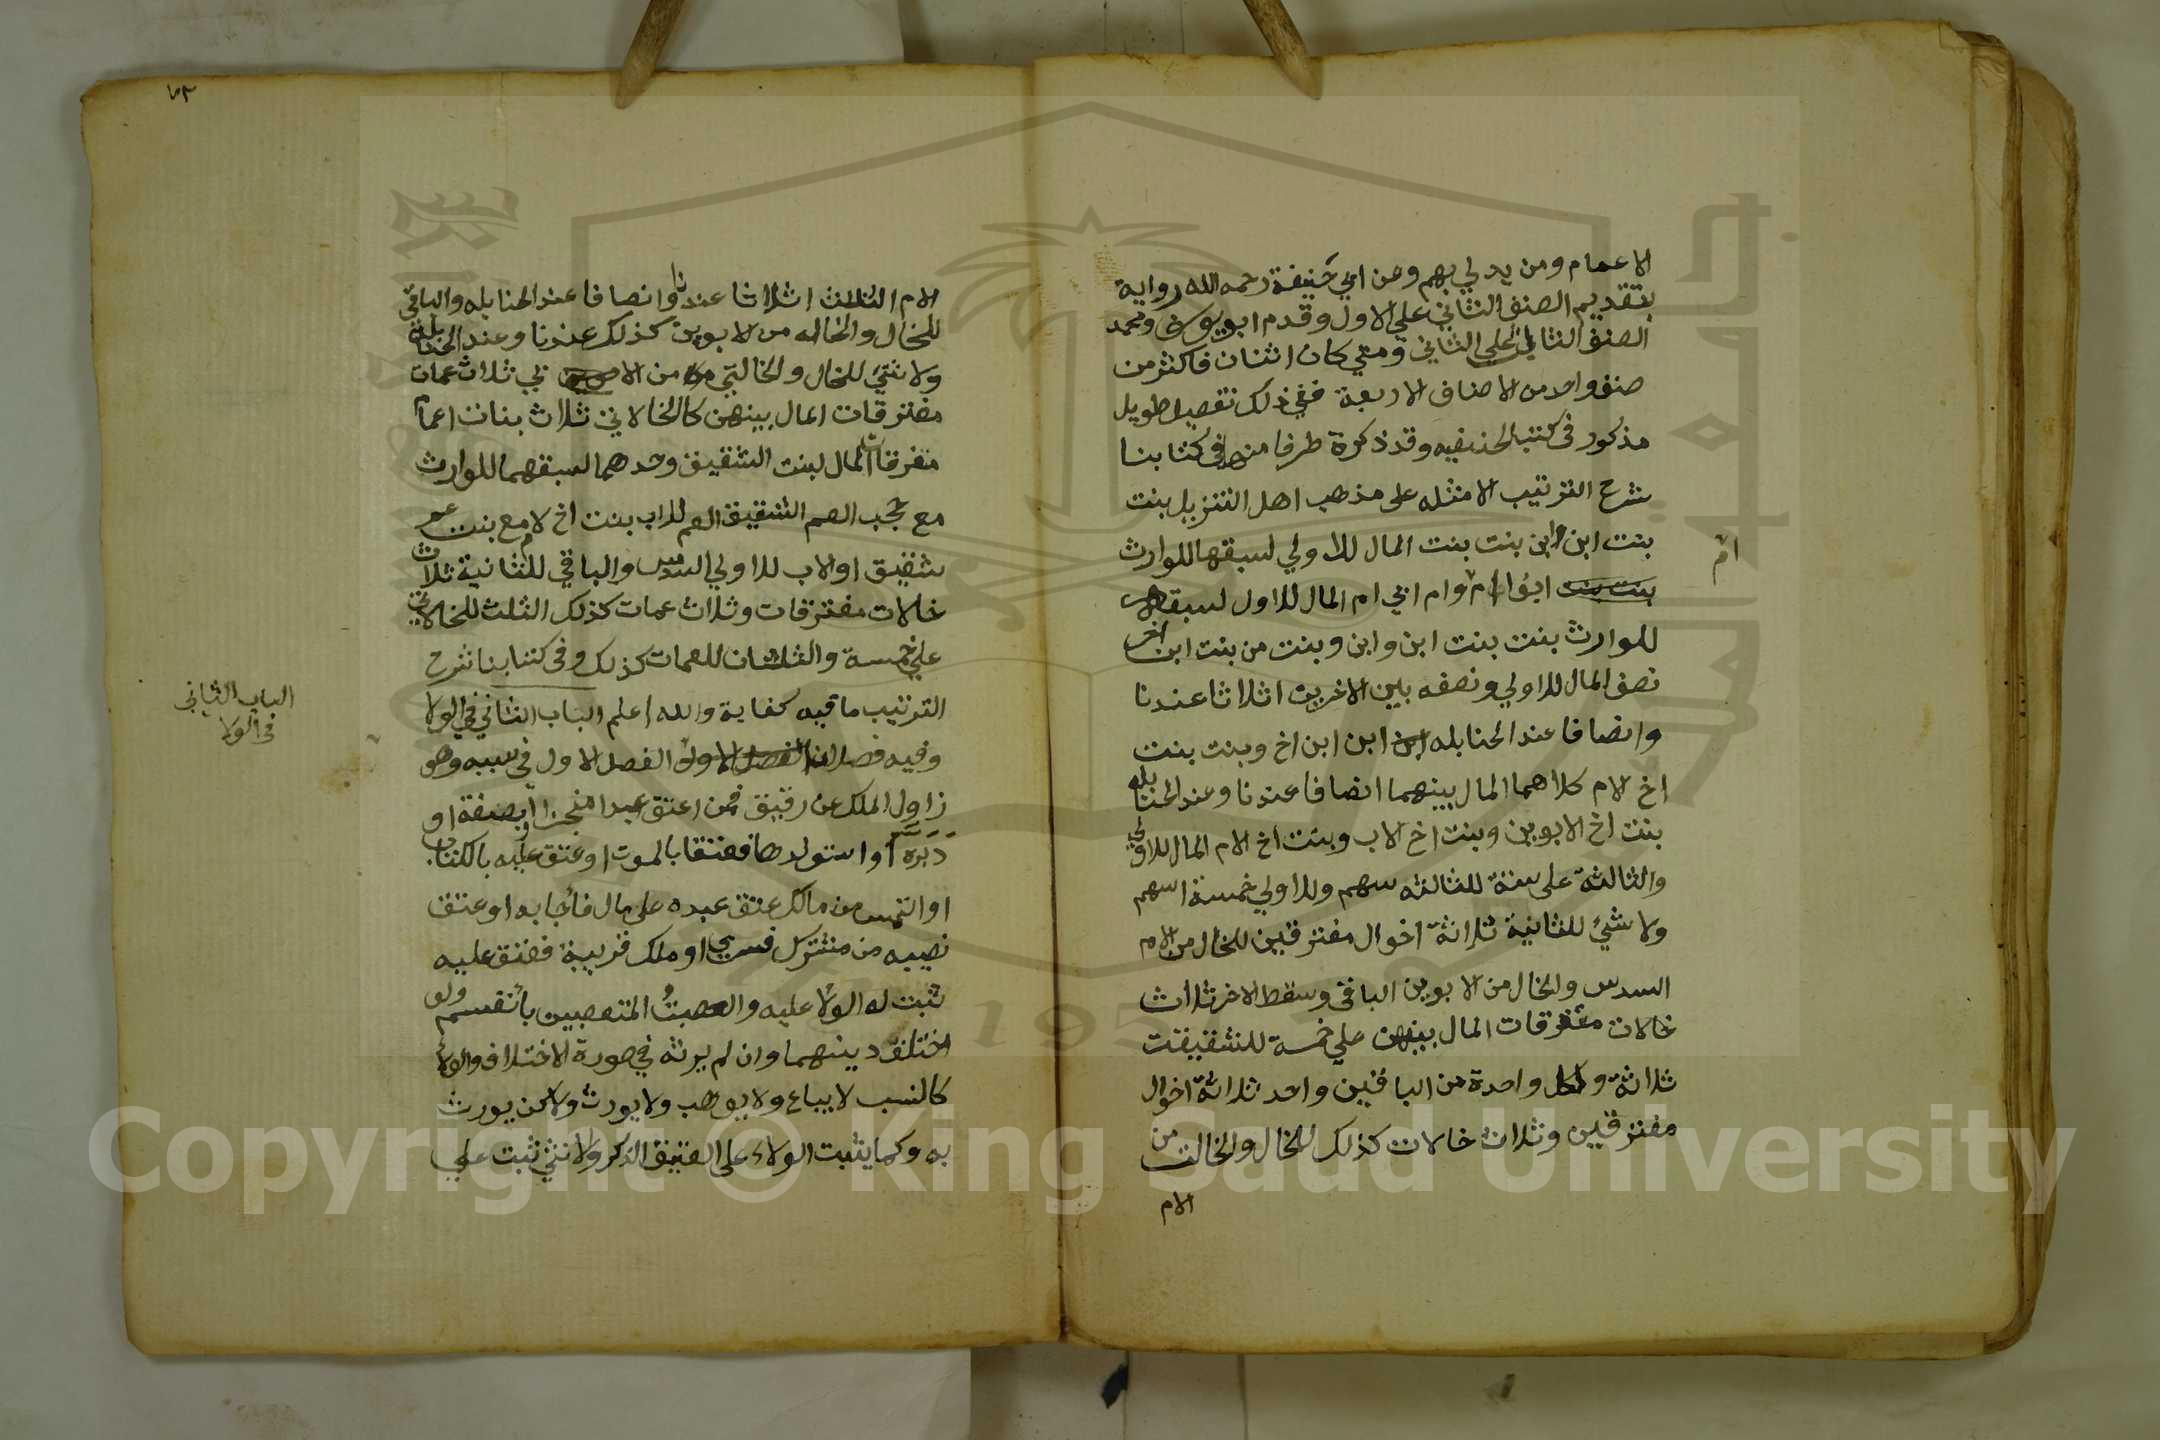 الاعمام ومن يدلي بهم وعن ابي حنيفة رحمه الله رواية
بتقديم الصنف الثاني علي الاول وقدم ابو يوسف ومحمد
الصنف الثالث علي الثاني ومتي كان اثنان فاكثر من
صنف واحد من الاصناف الاربعة ففي ذلك تفصيل طويل
مذكور في كتب الحنفيه وقد ذكرة طرفا منه في كتابنا
شرح الترتيب الامثله على مذهب اهل التنزيل بنت
بنت ابن وابن بنت بنت المال للاولي لسبقها للوارث
ام
ابو ام وام ابي ام المال للاول لسبقه
للوارث بنت بنت ابن وابن وبنت من بنت ابن اخر
نصف المال للاولي ونصفه بين الاخرين اثلاثا عندنا
وانصافا عند الحنابله ابن ابن اخ وبنت بنت
اخ لام كلاهما المال بينهما انصافا عندنا وعند الحنابله
بنت اخ لابوين وبنت اخ لاب وبنت اخ لام المال للاولي
والثالثة على ستة للثالثه سهم وللاولي خمسة اسهم
ولا شيء للثانية ثلاثة اخوال مفترقين للخال من الام
السدس والخال من الابوين الباقي وسقط الاخر ثلاث
خالات مفترقات المال بينهن علي خمسة للشقيقة
ثلاثة ولكل واحدة من الباقيين واحد ثلاثة اخوال
مفترقين وثلاث خالات كذلك للخال والخالة من
الام
٦٣
الام الثلث اثلاثا عندنا وانصافا عند الحنابله والباقي
للخال والخاله من الابوين كذلك عندنا وعند الحنابلة
ولا شيء للخال والخالة من الاب في ثلاث عمات
مفترقات المال بينهن كالخالات في ثلاث بنات اعمام
مفرقات المال لبنت الشقيق وحدها لسبقها للوارث
مع حجب العم الشقيق العم للاب بنت اخ لام مع بنت عم
شقيق او لاب للاولي السدس والباقي للثانية ثلاث
خالات مفترقات وثلاث عمات كذلك الثلث للخالات
علي خمسة والثلثان للعمات كذلك وفي كتابنا شرح
الترتيب ما فيه كفاية والله اعلم الباب الثاني في الولا
الباب الثاني
في الولا
وفيه فصلان الفصل الاول في سببه وهو
زاول الملك عن رقيق فمن اعتق عبدا منجزا او بصفة او
دبره او استولدها فعتقا بالموت او عتق عليه بالكتابة
او التمس من مالك عتق عبده على مال فأجابه او عتق
نصيبه من مشترك فسري او ملك قريبة فعتق عليه
ثبت له الولا عليه والعصبة المتعصبين بأنفسهم ولو
اختلف دينهما وان لم يرثه في صورة الاختلاف والولا
كالنسب لا يباع ولا يوهب ولا يورث ولاكن يورث
به وكما يثبت الولاء على العتيق الذكر والانثي ثبت علي
Copyright © King Saud University